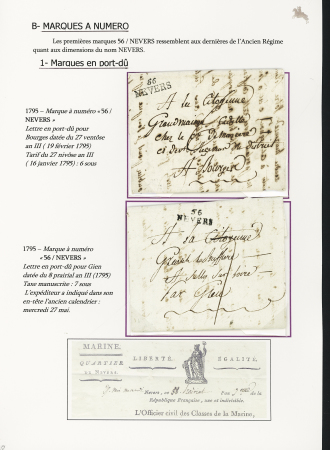 B- MARQUES A NUMERO
Les premières marques 56 / NEVERS ressemblent aux dernières de l'Ancien Régime
quant aux dimensions du nom NEVERS.
1- Marques en port-dû
1795 – Marque à numéro « 56 /
NEVERS »
Lettre en port-dû pour
Bourges datée du 27 ventôse
an III ( 19 février 1795)
Tarif du 27 nivôse an III
( 16 janvier 1795) : 6 sous
56
NEVERS
A la Citoyenne
1795 – Marque à numéro
« 56 / NEVERS »
Lettre en port-dû pour Gien
datée du 8 prairial an III (1795)
Taxe manuscrite : 7 sous
L'expéditeur a indiqué dans son
en-tête l'ancien calendrier :
mercredi 27 mai.
56
NEVERS
A la Citoyenne
par Gien
MARINE.
QUARTIER
de Nevers
LIBERTÉ.
ÉGALITÉ.
Nevers, le
de la
République Française, une et indivisible.
L'Officier civil des Classes de la Marine,